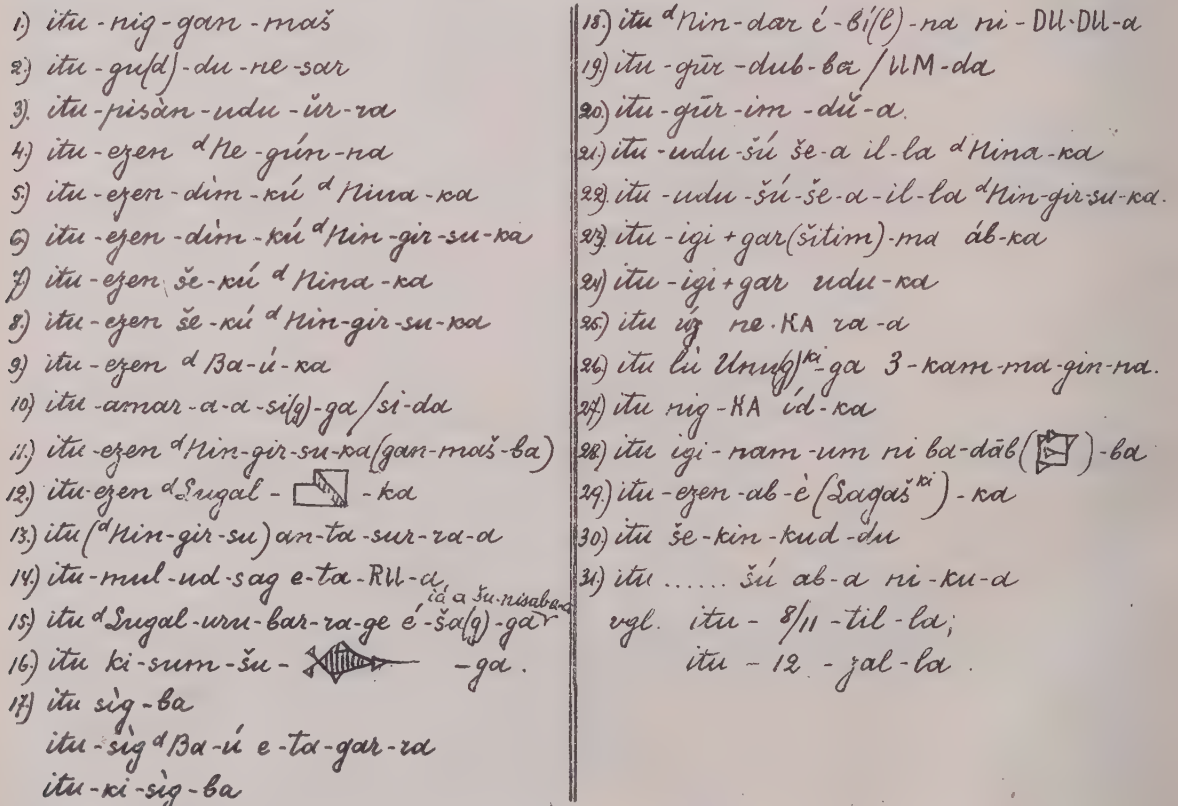 1.) itu-nig-gan-maš
2.) itu-gu(d)-du-ne-sar
3). itu-pisàn-udu-ŭr-ra
4.) itu-ezen ᵈNe-gún-na
5.) itu-ezen-dìm-kú ᵈNina-ka
6.) itu-ezen-dìm-kú ᵈNin-gir-su-ka
7.) itu-ezen še-kú ᵈNina-ka
8.) itu-ezen še-kú ᵈNin-gir-su-ka
9.) itu-ezen ᵈBa-ú-ka
10.) itu-amar-a-a-si(g)-ga/si-da
11.) itu-ezen ᵈNin-gir-su-ka(gan-maš-ba)
12.) itu-ezen ᵈLugal- -ka
13.) itu(ᵈNin-gir-su)an-ta-sur-ra-a
14.) itu-mul-ud-sag e-ta-RU-a
15.) itu ᵈLugal-uru-bar-ra-ge é-ša(g)-ga
16.) itu ki-sum-šu- -ga.
17.) itu sìg-ba
itu-sìg ᵈBa-ú e-ta-gar-ra
itu-ki-sìg-ba
18.) itu ᵈNin-dar é-bí(l)-na ni-DU-DU-a
19.) itu-gūr-dub-ba/UM-da
20.) itu-gūr-im-dŭ-a.
21.) itu-udu-šú še-a il-la ᵈNina-ka
22.) itu-udu-šú-še-a-il-la ᵈNin-gir-su-ka.
23.) itu-igi+gar(šitim)-ma áb-ka
24.) itu-igi+gar udu-ka
25.) itu úz ne.KA ra-a
26.) itu lù Unu(g)ᵏⁱ-ga 3-kam-ma-gin-na.
27.) itu nig-KA íd-ka
28.) itu igi-nam-um ni ba-dāb( )-ba
29.) itu-ezen-ab-è (Lagašᵏⁱ)-ka
30.) itu še-kin-kud-du
31.) itu ...... šú ab-a ni-ku-a
vgl. itu - 8/11-til-la;
itu - 12 - zal-la.